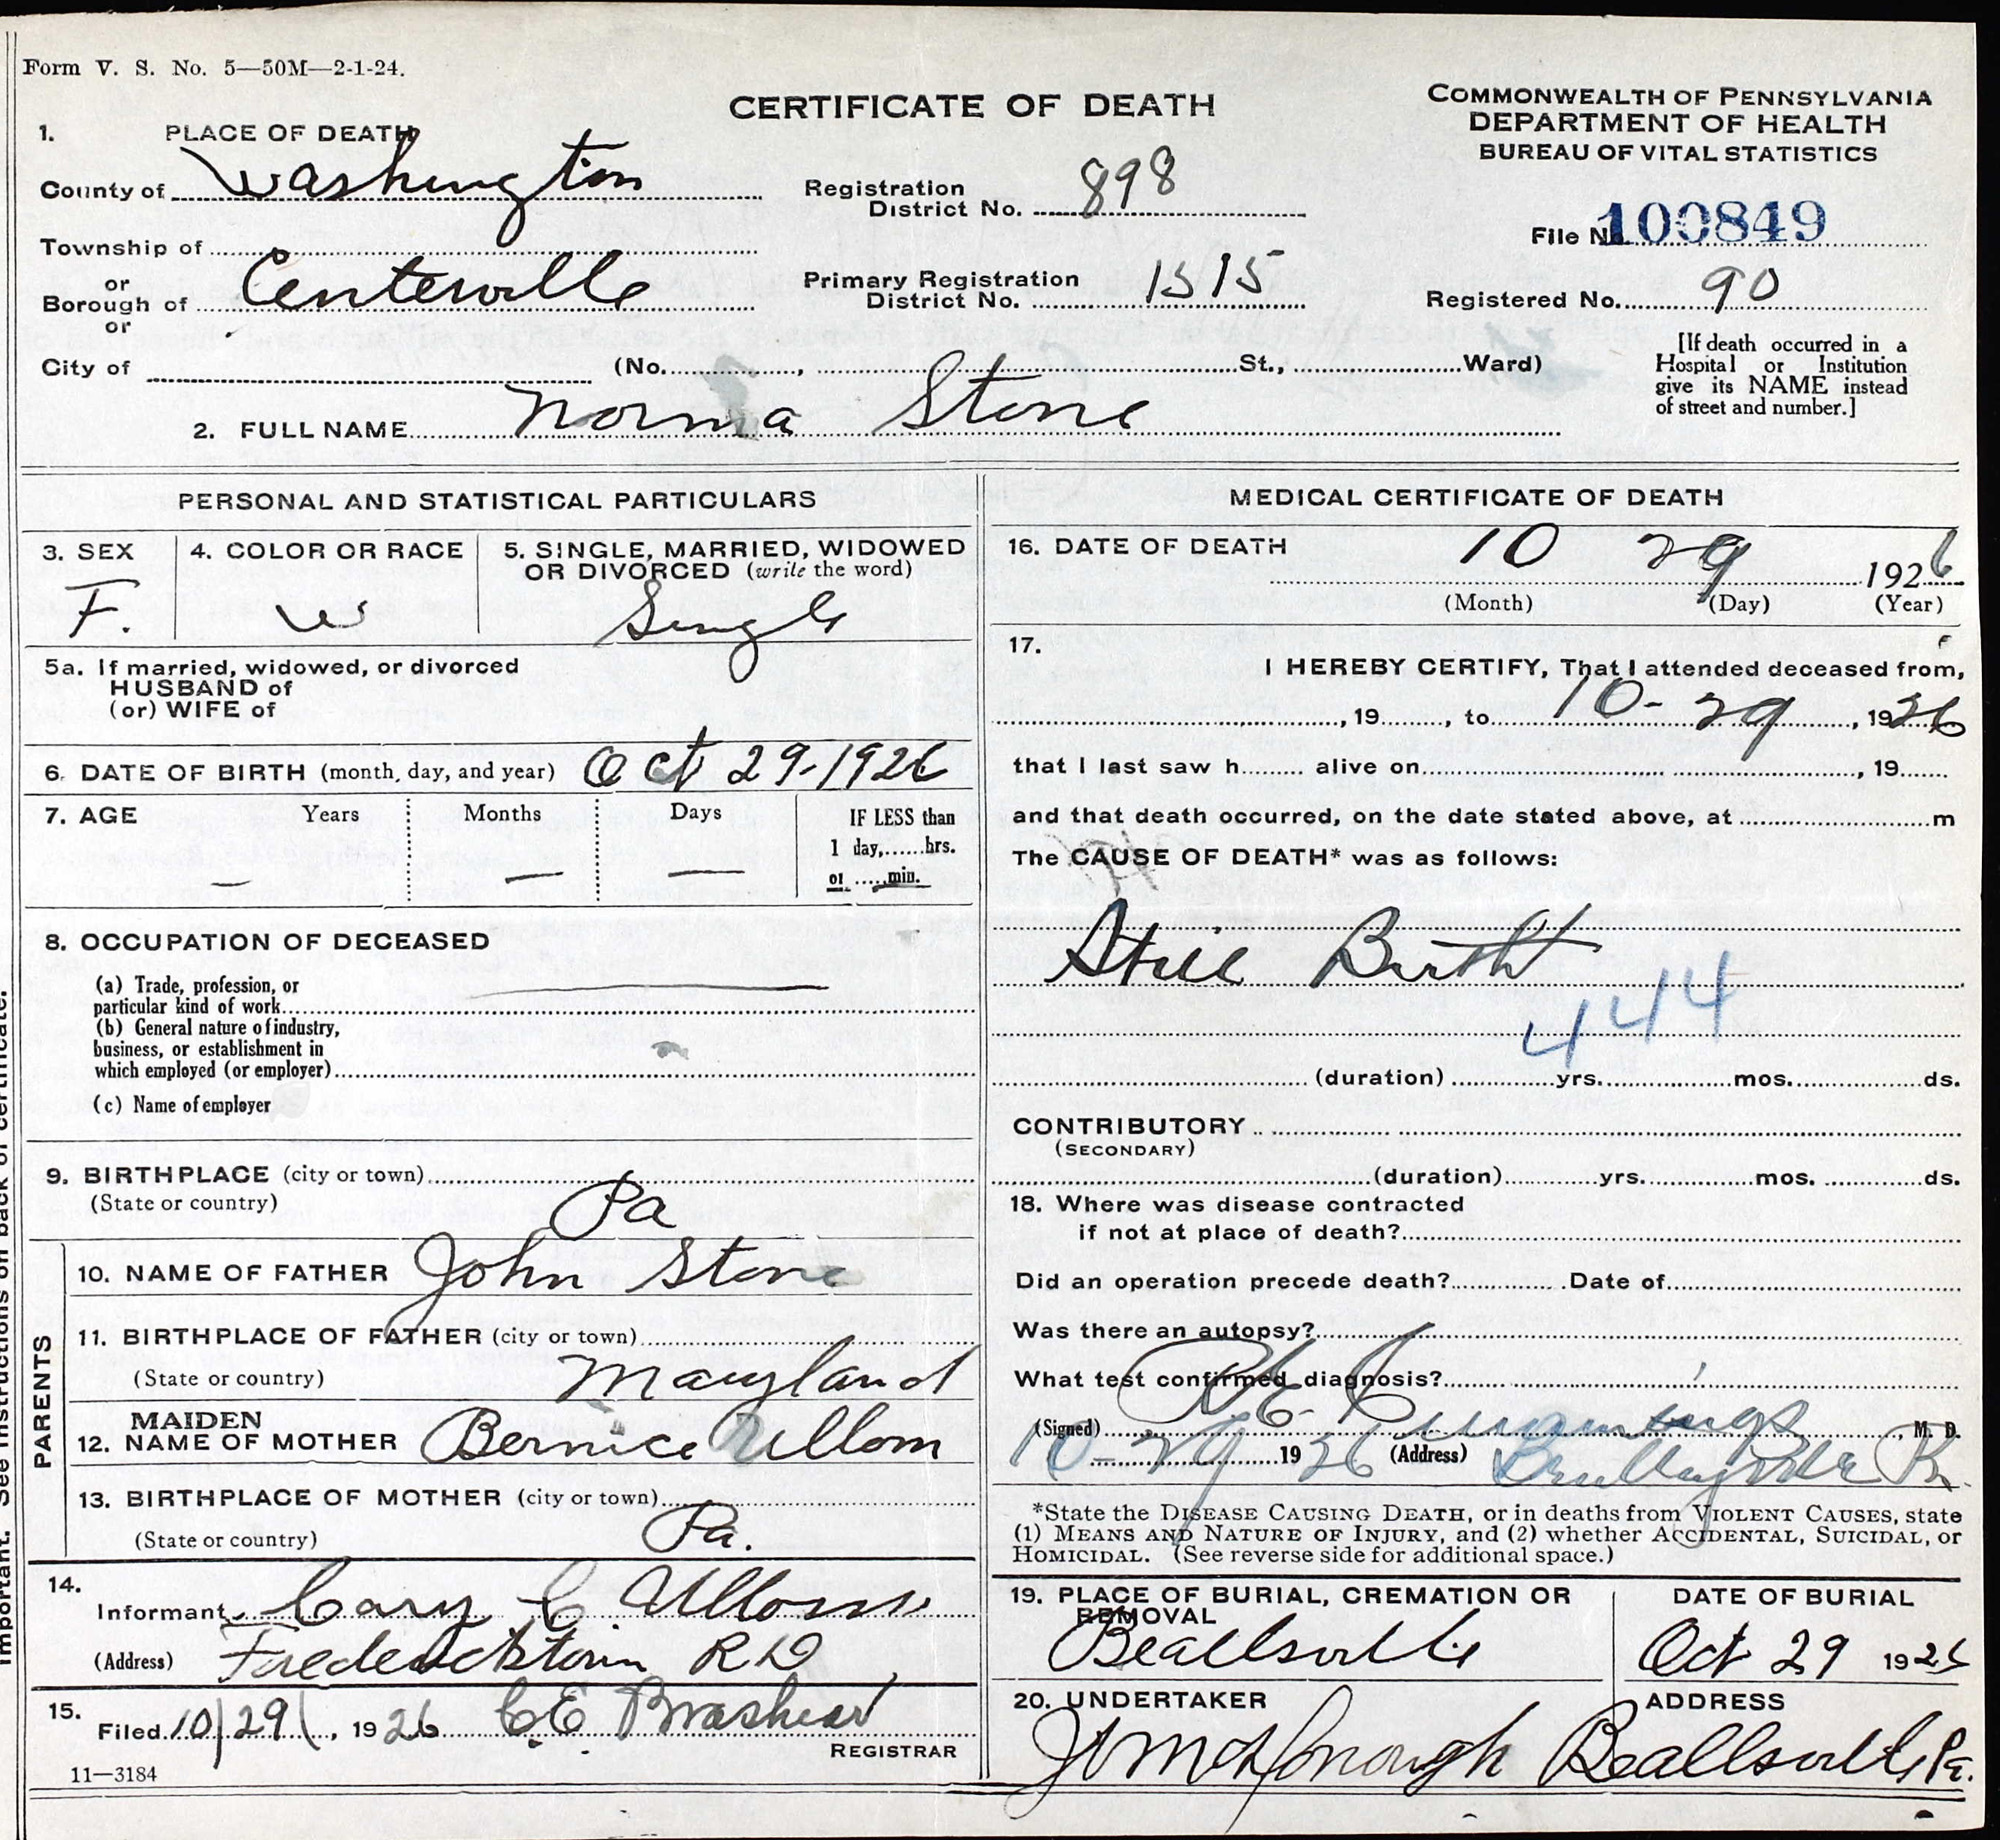 Form V. S. No. 5—50M—2-1-24.
CERTIFICATE OF DEATH
COMMONWEALTH OF PENNSYLVANIA
DEPARTMENT OF HEALTH
BUREAU OF VITAL STATISTICS
1. PLACE OF DEATH
County of Washington
Registration District No. 898
File No. 100849
Township of
or
Borough of Centerville
or
Primary Registration District No. 1515
Registered No. 90
City of (No. , St., Ward)
[If death occurred in a
Hospital or Institution
give its NAME instead
of street and number.]
2. FULL NAME Norma Stone
PERSONAL AND STATISTICAL PARTICULARS
3. SEX
F.
4. COLOR OR RACE
W
5. SINGLE, MARRIED, WIDOWED
OR DIVORCED (write the word)
Single
5a. If married, widowed, or divorced
HUSBAND of
(or) WIFE of
6. DATE OF BIRTH (month, day, and year) Oct 29-1926
7. AGE Years Months Days IF LESS than
1 day, hrs.
or min.
— — —
8. OCCUPATION OF DECEASED
(a) Trade, profession, or
particular kind of work
(b) General nature of industry,
business, or establishment in
which employed (or employer)
(c) Name of employer
9. BIRTHPLACE (city or town)
(State or country) Pa
PARENTS
10. NAME OF FATHER John Stone
11. BIRTHPLACE OF FATHER (city or town)
(State or country) Maryland
12. MAIDEN NAME OF MOTHER Bernice Ullom
13. BIRTHPLACE OF MOTHER (city or town)
(State or country) Pa.
14.
Informant Cary C Ullom
(Address) Fredericktown R D
15.
Filed 10/29/, 1926 C E Brashear
REGISTRAR
11—3184
MEDICAL CERTIFICATE OF DEATH
16. DATE OF DEATH 10 29 1926
(Month) (Day) (Year)
17.
I HEREBY CERTIFY, That I attended deceased from,
, 19 , to 10-29, 1926
that I last saw h alive on , 19
and that death occurred, on the date stated above, at m
The CAUSE OF DEATH* was as follows:
Still Birth
444
(duration) yrs. mos. ds.
CONTRIBUTORY
(SECONDARY)
(duration) yrs. mos. ds.
18. Where was disease contracted
if not at place of death?
Did an operation precede death? Date of
Was there an autopsy?
What test confirmed diagnosis?
(Signed) Cummings, M. D.
10-29 1926 (Address)
*State the DISEASE CAUSING DEATH, or in deaths from VIOLENT CAUSES, state
(1) MEANS AND NATURE OF INJURY, and (2) whether ACCIDENTAL, SUICIDAL, or
HOMICIDAL. (See reverse side for additional space.)
19. PLACE OF BURIAL, CREMATION OR
REMOVAL
Beallsville
DATE OF BURIAL
Oct 29 1926
20. UNDERTAKER
McDonough
ADDRESS
Beallsville Pa.
Important. See instructions on back of certificate.